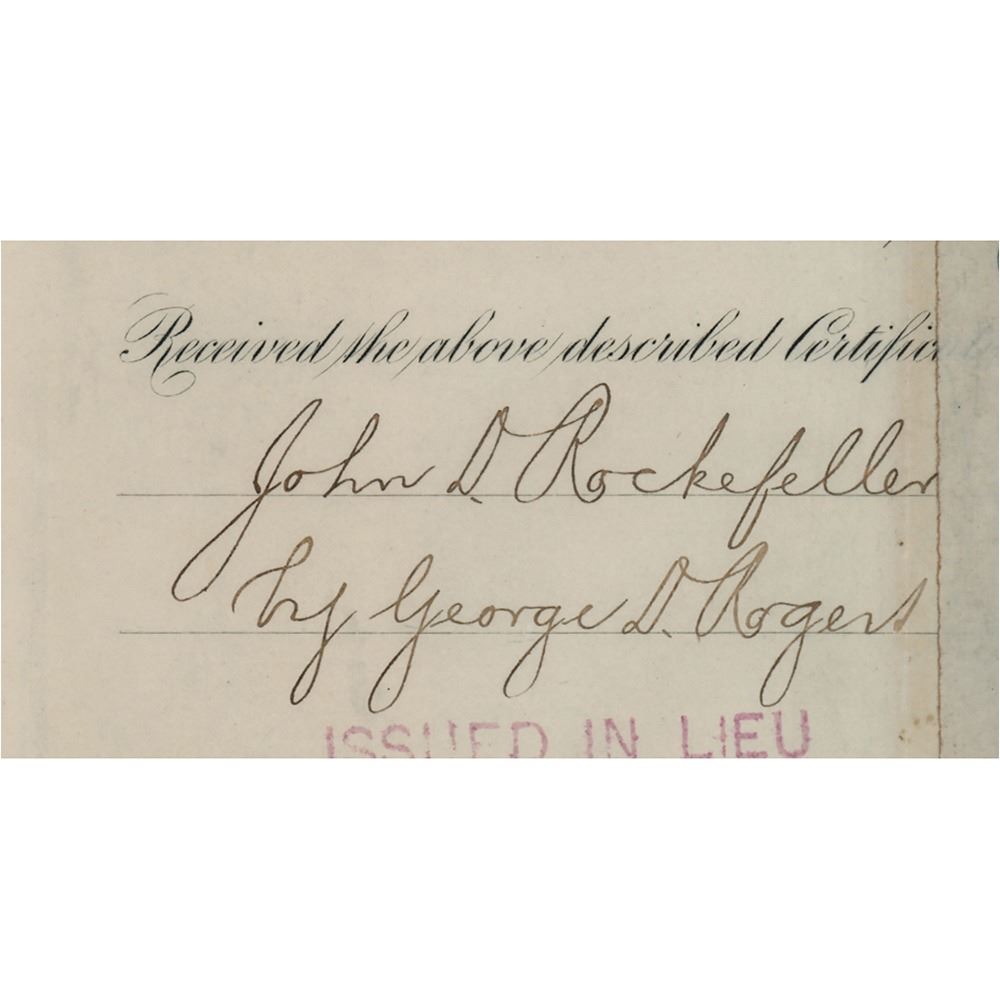 Received the above described Certific
John D. Rockefeller
by George D. Rogers
ISSUED IN LIEU